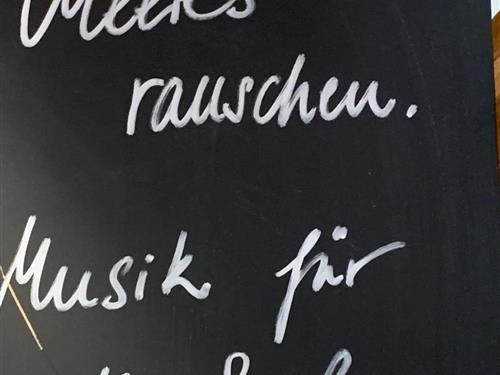 Meeres
rauschen.
Musik für